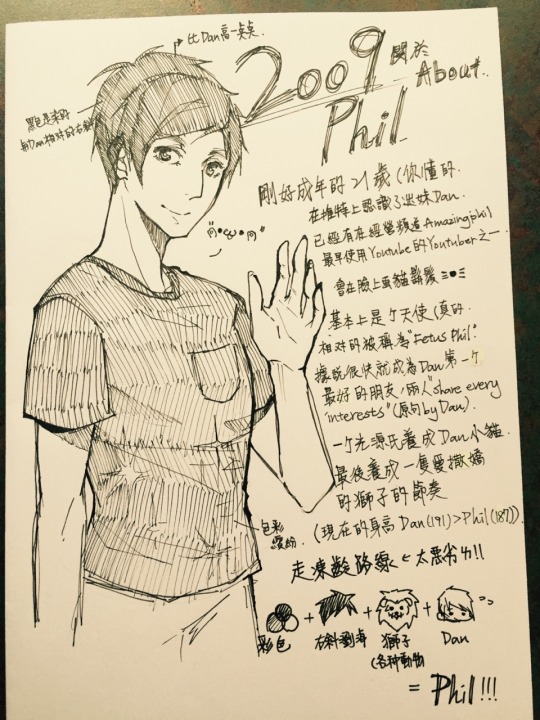 比Dan高一奌奌.
2009 關於
About..
Phil
黑色是染的
與Dan相対的右斜
剛好成年的21歲(你懂的.
在推特上認識了迷妹Dan.
已經有在經營頻道Amazingphil
最早使用Youtube的Youtuber之一.
會在臉上畫貓鬍鬚
基本上是个天使(真的.
相対的被稱為"Fetus Phil".
據説很快就成為Dan第一个
最好的朋友,兩人"share every
interests"(原句by Dan).
一个光源氏養成Dan小貓.
最後養成一隻愛撒嬌
的獅子的節奏
色彩
繽紛.
(現在的身高 Dan(191)>Phil(187)).
走凍齡路線 ← 太悪劣力!!
彩色 + 右斜瀏海 + 獅子 + Dan
(各种動物
= Phil!!!